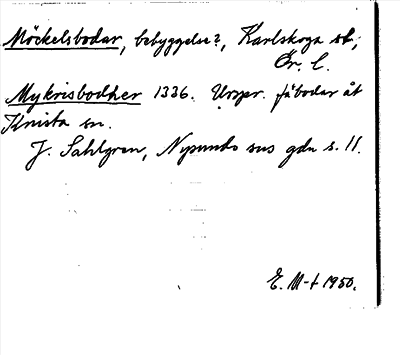 Möckelsbodar, bebyggelse?, Karlskoga sk;
Ör. l.
Mykrisbodher 1336. Urspr. fäbodar åt
Knista sn.
J. Sahlgren, Nysunds sns gdn s. 11.
E. M-t 1950.